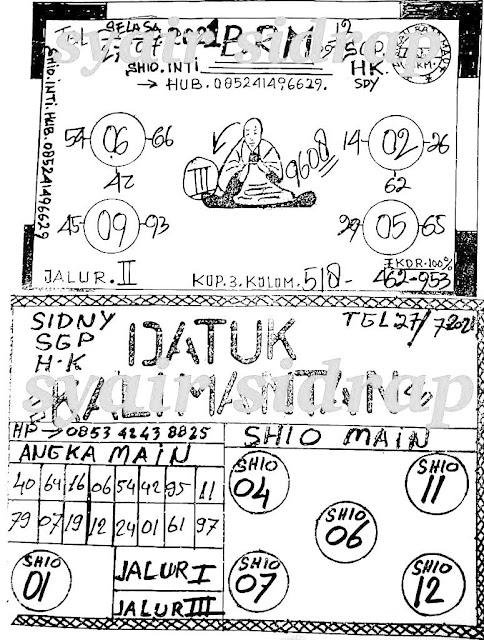 SELASA
TGL 27/07/2021 BRM 12 SGP.
SHIO.INTI HK.
→ HUB. 085241496629. SDY
SHIO.INTI.HUB.085241496629
54 06 66
42
14 02 26
62
III
9608
45 09 93
29 05 65
I KDR.100%
JALUR.II KUP.3.KOLOM.518- 462-953
syair sidrap
SIDNY
SGP
H.K
DATUK
TGL 27/7 2021
"KALIMANTAN"
syair sidrap
HP → 0853 4243 8825
SHIO MAIN
ANGKA MAIN
40 64 16 06 54 42 95 11
79 07 19 12 24 01 61 97
SHIO
04
SHIO
11
SHIO
06
SHIO
01
JALUR I
JALUR III
SHIO
07
SHIO
12